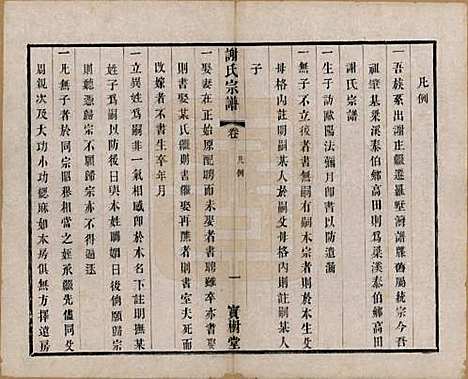 凡例
一吾族系出謝正疆遷羅墅灣譜牒舊屬統宗今吾
祖肇基梁溪泰伯鄉高田則爲梁溪泰伯鄉高田
謝氏宗譜
一生子訪歐陽法彌月即書以防遺漏
一無子不入別書者無嗣有嗣本宗者則於本生父
母格內註明嗣某人於嗣父母格內註明嗣某人
子
謝氏宗譜
卷
凡例
一
寶樹堂
一娶妻在正始原配聘而未娶者書聘雖卒亦書
則書娶某氏繼則書繼娶再醮者則書室夫死而
改嫁者不書生卒年月
一立異姓爲嗣非一氣相感即於本名下註明撫某
姓子爲嗣以防後日與本姓聯姻日後倘願歸宗
則聽憑歸宗不願歸宗亦不得過泛
一凡無子者於同宗昭穆相當之姪承繼先儘同
周親次及大功小功緦麻如本房俱無方擇遠房